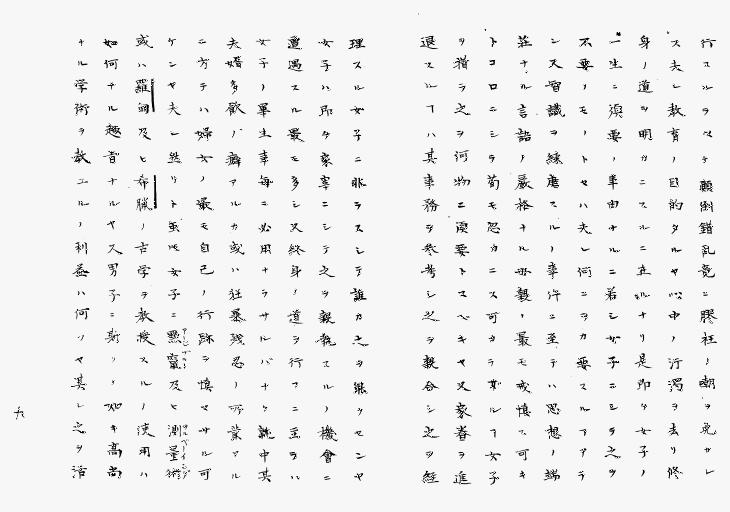 行スルヲヘテ顛倒錯乱竟ニ膠柱ノ嘲ヲ免カレ
ス夫レ教育ノ目的タルヤ心中ノ汙濁ヲ去リ修
身ノ道ヲ明カニスルニ在ルナリ是即チ女子ノ
一生ニ須要ノ事由ナルニ若シ女子ニシテ之ヲ
不要ノモノトセハ夫レ何ヲカ要スルアアラ
ン又智識ヲ練磨スルノ事件ニ至テハ思想ノ端
荘ナル言語ノ厳格ナル毎毅ノ最モ戒慎ス可キ
トコロニシテ苟モ忽カニス可カラザルアヿ女子
ヲ措テ之ヲ河物ニ須要トスベキヤ又家眷ヲ進
退スルヿハ其事務ヲ参考シ之ヲ穀合シ之ヲ経
理スル女子ニ非ラスシテ誰カ之ヲ能クセンヤ
女子ハ即チ家事ニシテ之ヲ親執スルノ機會ニ
遭遇スル最モ多シ又終身ノ道ヲ行フニ至ツハ
女子ノ畢生事毎ニ必用ナラサルハナク就中其
夫婿多歓ノ癖アルカ或ハ狂暴残忍ノ所業アル
ニ方テハ婦女ノ最モ自己ノ行跡ヲ慎マサル可
ケンヤ夫レ然リト雖モ女子ニ點竄及ヒ測量術
或ハ羅甸及ヒ希臘ノ古学ヲ教授スルノ使用ハ
如何ナル趣旨ナルヤ又男子ニ斯ノノ如キ高尚
ナル学術ヲ教エルノ利益ハ何ソヤ其レ之ヲ活
九